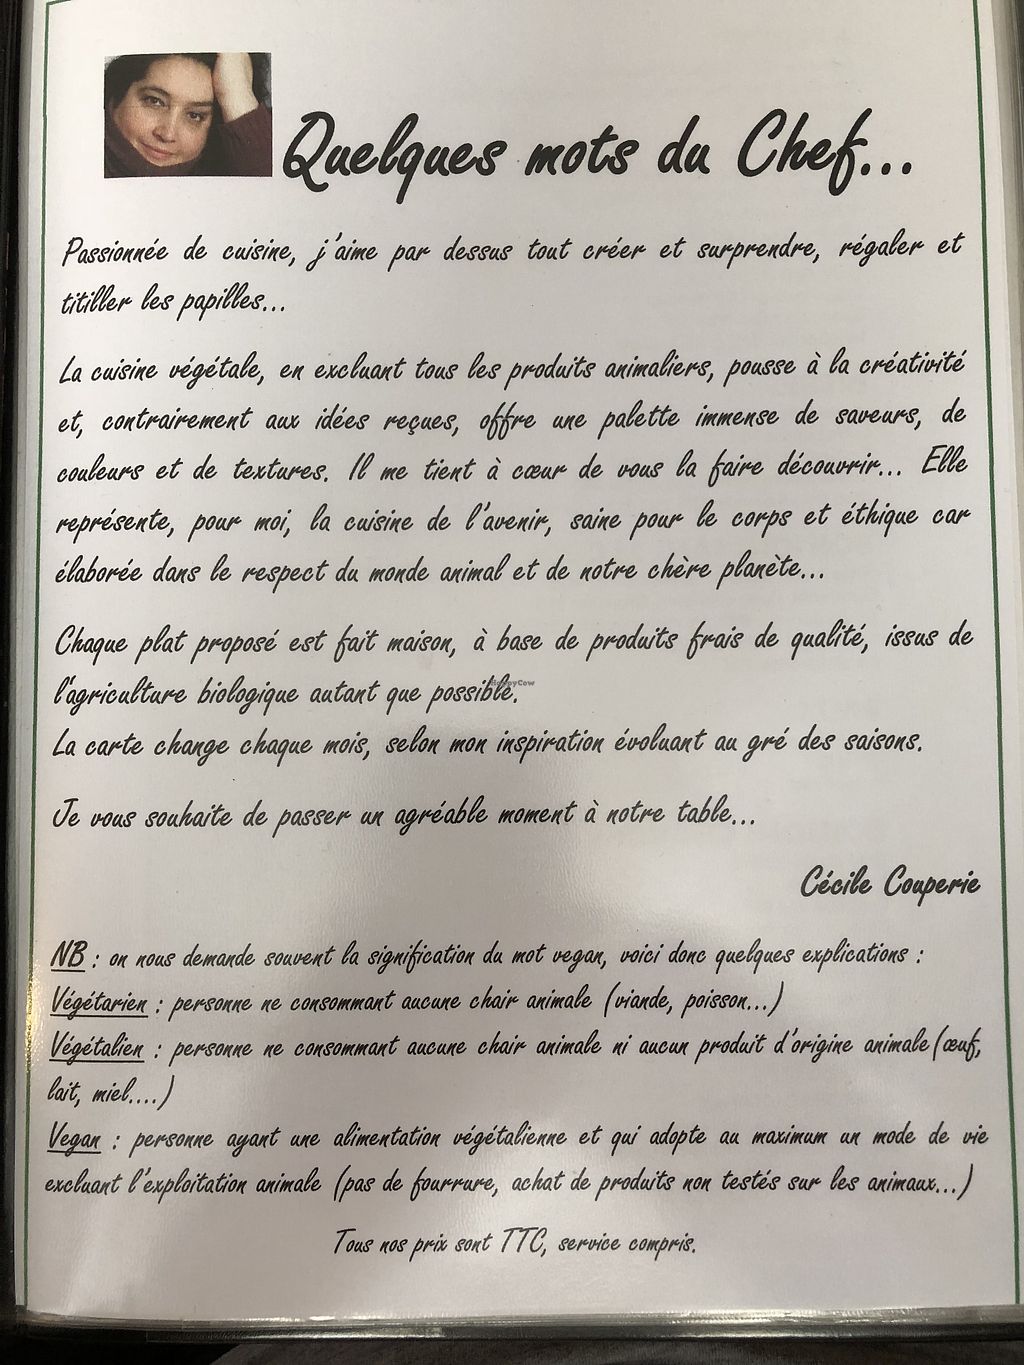 Quelques mots du Chef...
Passionnée de cuisine, j'aime par dessus tout créer et surprendre, régaler et
titiller les papilles...
La cuisine végétale, en excluant tous les produits animaliers, pousse à la créativité
et, contrairement aux idées reçues, offre une palette immense de saveurs, de
couleurs et de textures. Il me tient à cœur de vous la faire découvrir... Elle
représente, pour moi, la cuisine de l'avenir, saine pour le corps et éthique car
élaborée dans le respect du monde animal et de notre chère planète...
Chaque plat proposé est fait maison, à base de produits frais de qualité, issus de
l'agriculture biologique autant que possible.
HappyCow
La carte change chaque mois, selon mon inspiration évoluant au gré des saisons.
Je vous souhaite de passer un agréable moment à notre table...
Cécile Couperie
NB : on nous demande souvent la signification du mot vegan, voici donc quelques explications :
Végétarien : personne ne consommant aucune chair animale (viande, poisson...)
Végétalien : personne ne consommant aucune chair animale ni aucun produit d'origine animale(œuf,
lait, miel....)
Vegan : personne ayant une alimentation végétalienne et qui adopte au maximum un mode de vie
excluant l'exploitation animale (pas de fourrure, achat de produits non testés sur les animaux...)
Tous nos prix sont TTC, service compris.